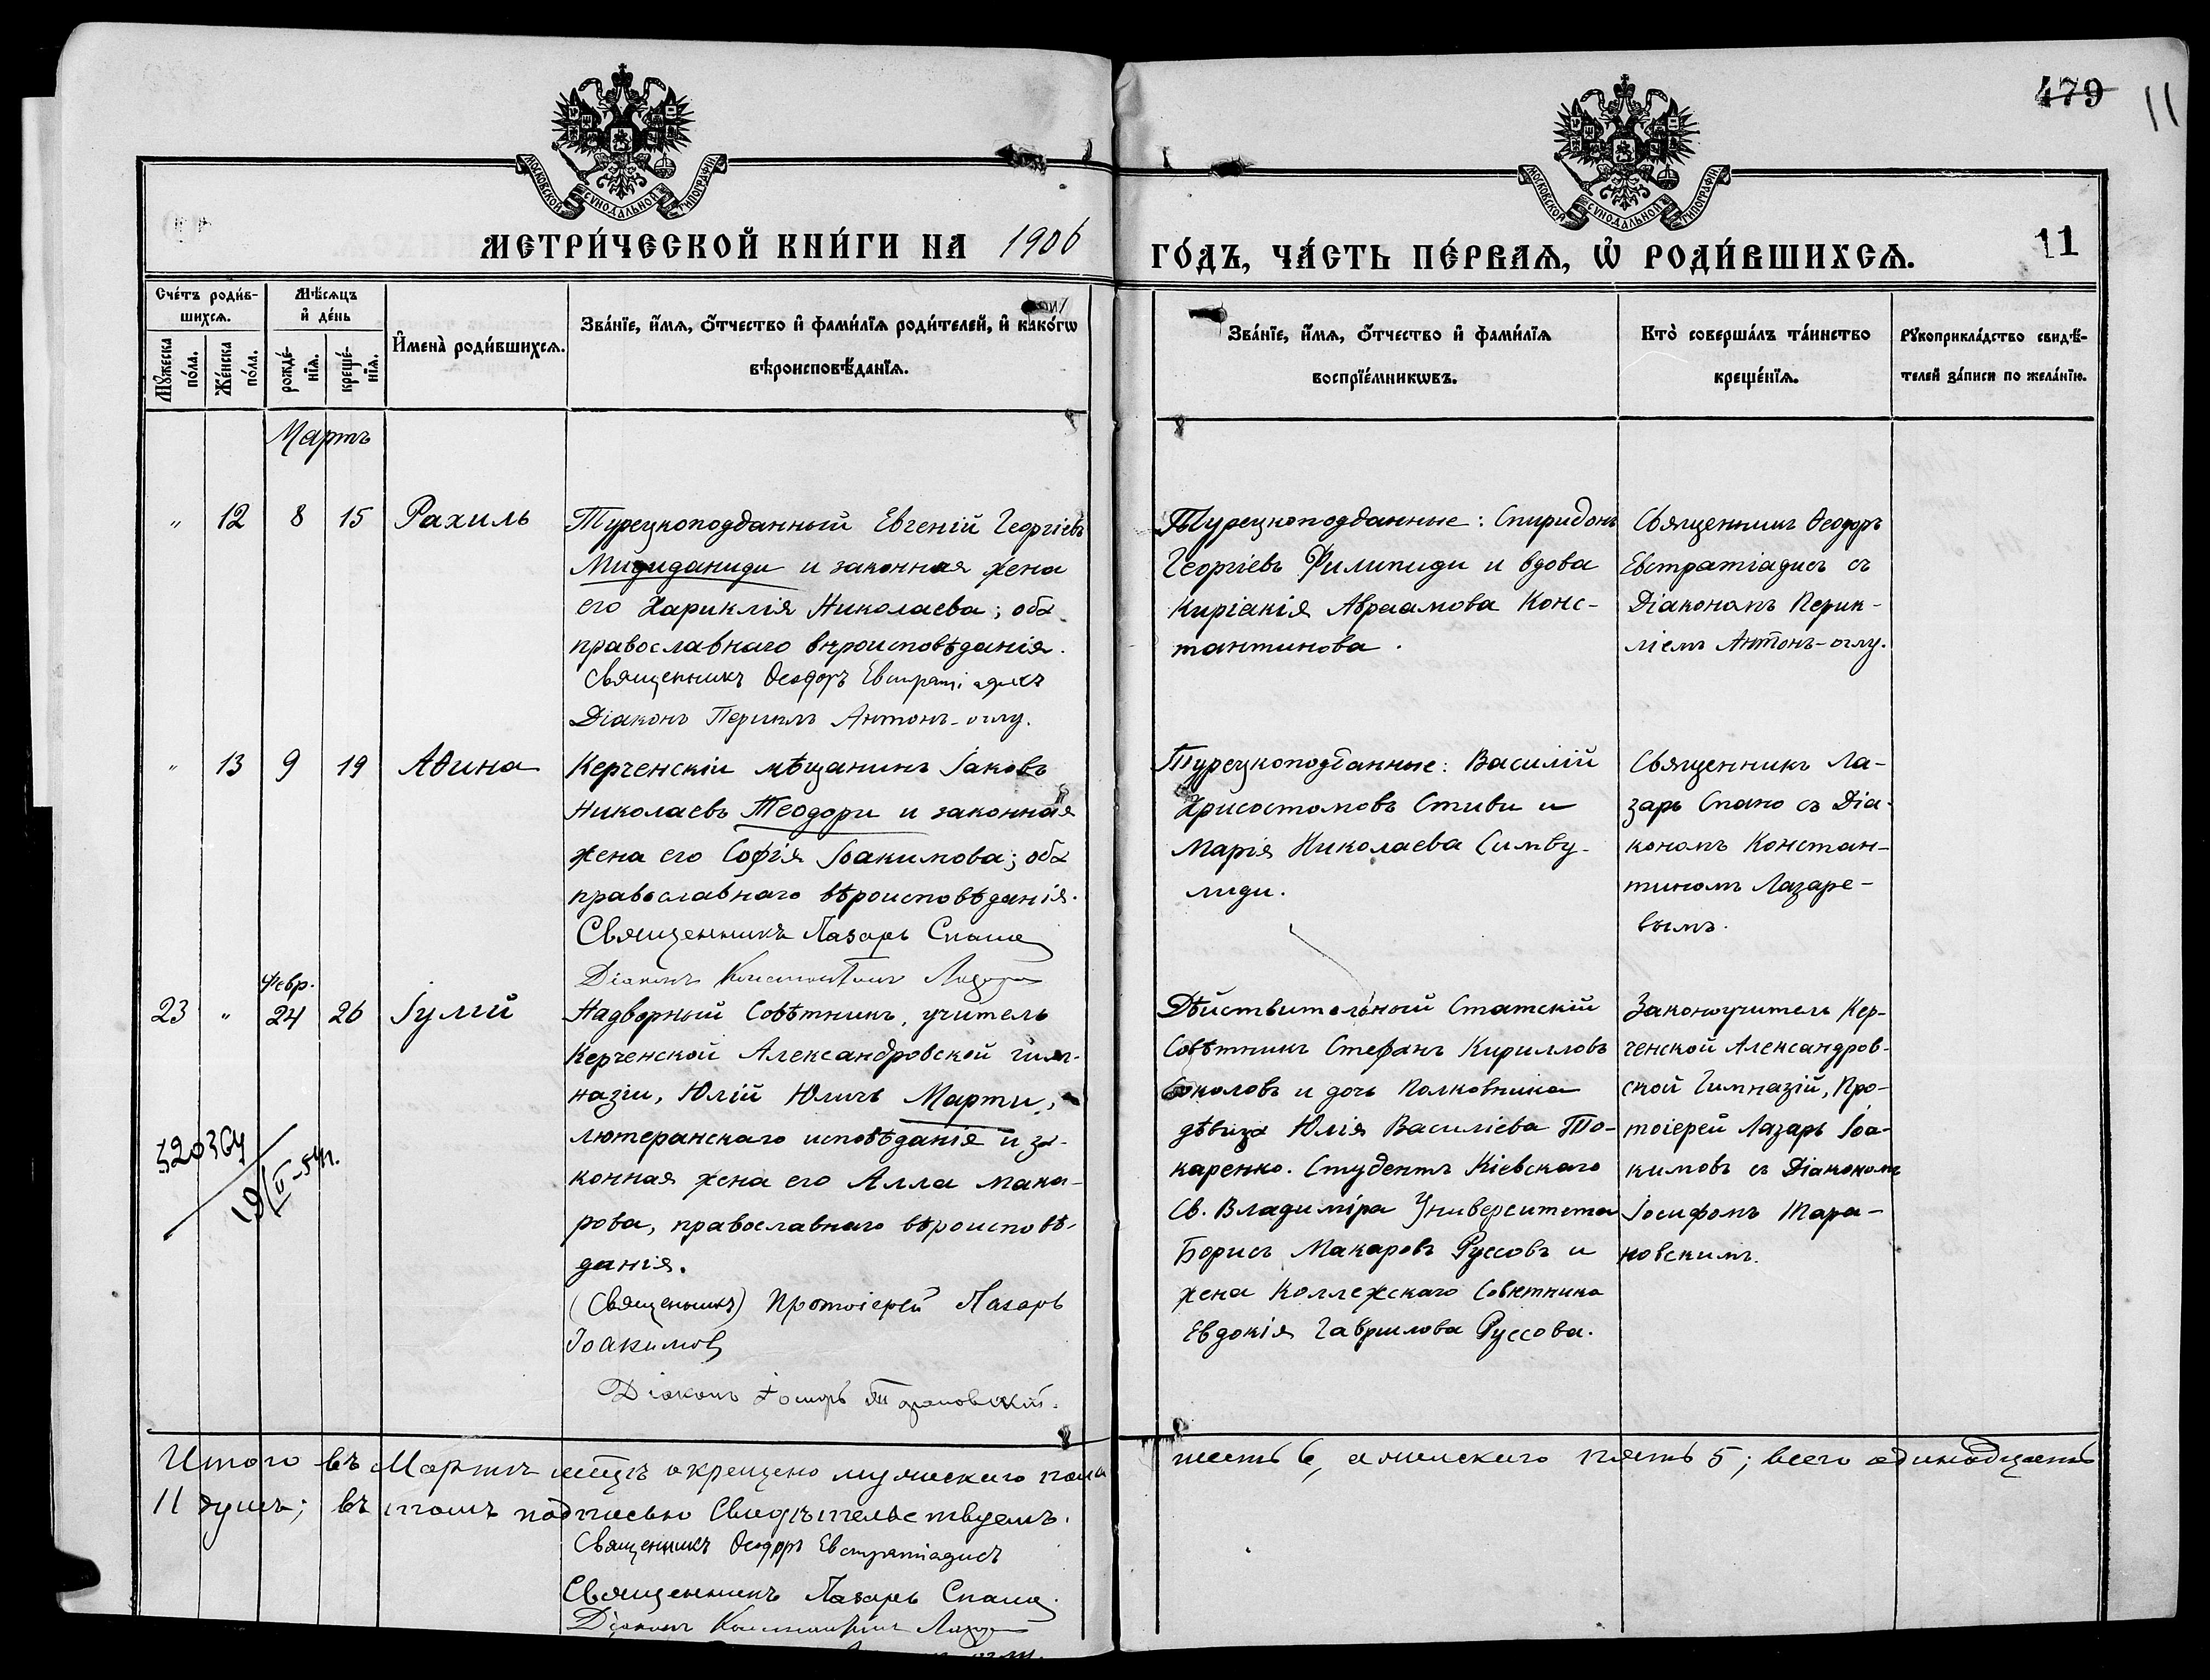 479
11
МОСКОВСКОЙ СУНОДАЛЬНОЙ ТИПОГРАФІИ
МОСКОВСКОЙ СУНОДАЛЬНОЙ ТИПОГРАФІИ
МЕТРИ́ЧЕСКОЙ КНИ́ГИ НА 1906
ГО́ДЪ, ЧА́СТЬ ПЕ́РВАЯ, Ѡ҆ РОДИ́ВШИХСѦ.
11
Сче́тъ роди́в-
шихсѧ.
Мꙋ́жеска
по́ла.
Же́нска
по́ла.
Мѣ́сѧцъ
и҆ де́нь
рожде́-
нїѧ.
креще́-
нїѧ.
И҆мена̀ роди́вшихсѧ.
Зва́нїе, и҆́мѧ, ѻ҆́тчество и҆ фами́лїѧ роди́телей, и҆ како́гѡ
вѣроисповѣ́данїѧ.
Зва́нїе, и҆́мѧ, ѻ҆́тчество и҆ фами́лїѧ
воспрїе́мникѡвъ.
Кто̀ соверша́лъ та́инство
креще́нїѧ.
Рꙋкоприкла́дство свидѣ́-
телей за́писи по жела́нїю.
Мартъ
" 12 8 15 Рахиль
Турецкоподданный Евгеній Георгіевъ
и законная жена
его Хариклія Николаева; оба
православнаго вѣроисповѣданія.
Священникъ Ѳеодоръ Евстратіадисъ
Діаконъ Периклъ Антонъ-оглу.
Турецкоподданные: Спиридонъ
Георгіевъ Филипиди и вдова
Киріакія Авраамова Конс-
тантинова.
Священникъ Ѳеодоръ
Евстратіадисъ съ
Діакономъ Перик-
ліемъ Антонъ-оглу.
" 13 9 19 Аѳина
Керченскій мѣщанинъ Іаковъ
Николаевъ Теодори и законная
жена его Софія Іоакимова; оба
православнаго вѣроисповѣданія.
Священникъ Лазарь Спано
Діаконъ Константинъ
Турецкоподданные: Василій
Хрисостомовъ Стиви и
Марія Николаева Симву-
лиди.
Священникъ Ла-
зарь Спано съ Діа-
кономъ Констан-
тиномъ Лазаре-
вымъ.
Февр.
23 " 24 26 Іулій
Надворный Совѣтникъ, учитель
Керченской Александровской гим-
назіи, Юлій Юличъ Марти,
лютеранскаго исповѣданія и за-
конная жена его Алла Мака-
рова, православнаго вѣроисповѣ-
данія.
(Священникъ) Протоіерей Лазарь
Іоакимовъ
Діаконъ Іосифъ Тарановскій.
320364
19/II-54г.
Дѣйствительный Статскій
Совѣтникъ Стефанъ Кирилловъ
Соколовъ и дочь Полковника
дѣвица Юлія Василіева То-
каренко. Студентъ Кіевскаго
Св. Владиміра Университета
Борисъ Макаровъ Руссовъ и
жена Коллежскаго Совѣтника
Евдокія Гавриилова Руссова.
Законоучитель Кер-
ченской Александров-
ской Гимназій, Про-
тоіерей Лазарь Іоа-
кимовъ съ Діакономъ
Іосифомъ Тара-
новскимъ.
Итого въ Мартѣ мѣсяцѣ окрещено мужескаго пола
шесть 6, а женскаго пять 5; всего одинадцать
11 душъ; въ томъ подписью Свидѣтельствуемъ.
Священникъ Ѳеодоръ Евстратіадисъ
Священникъ Лазарь Спано
Діаконъ Константинъ